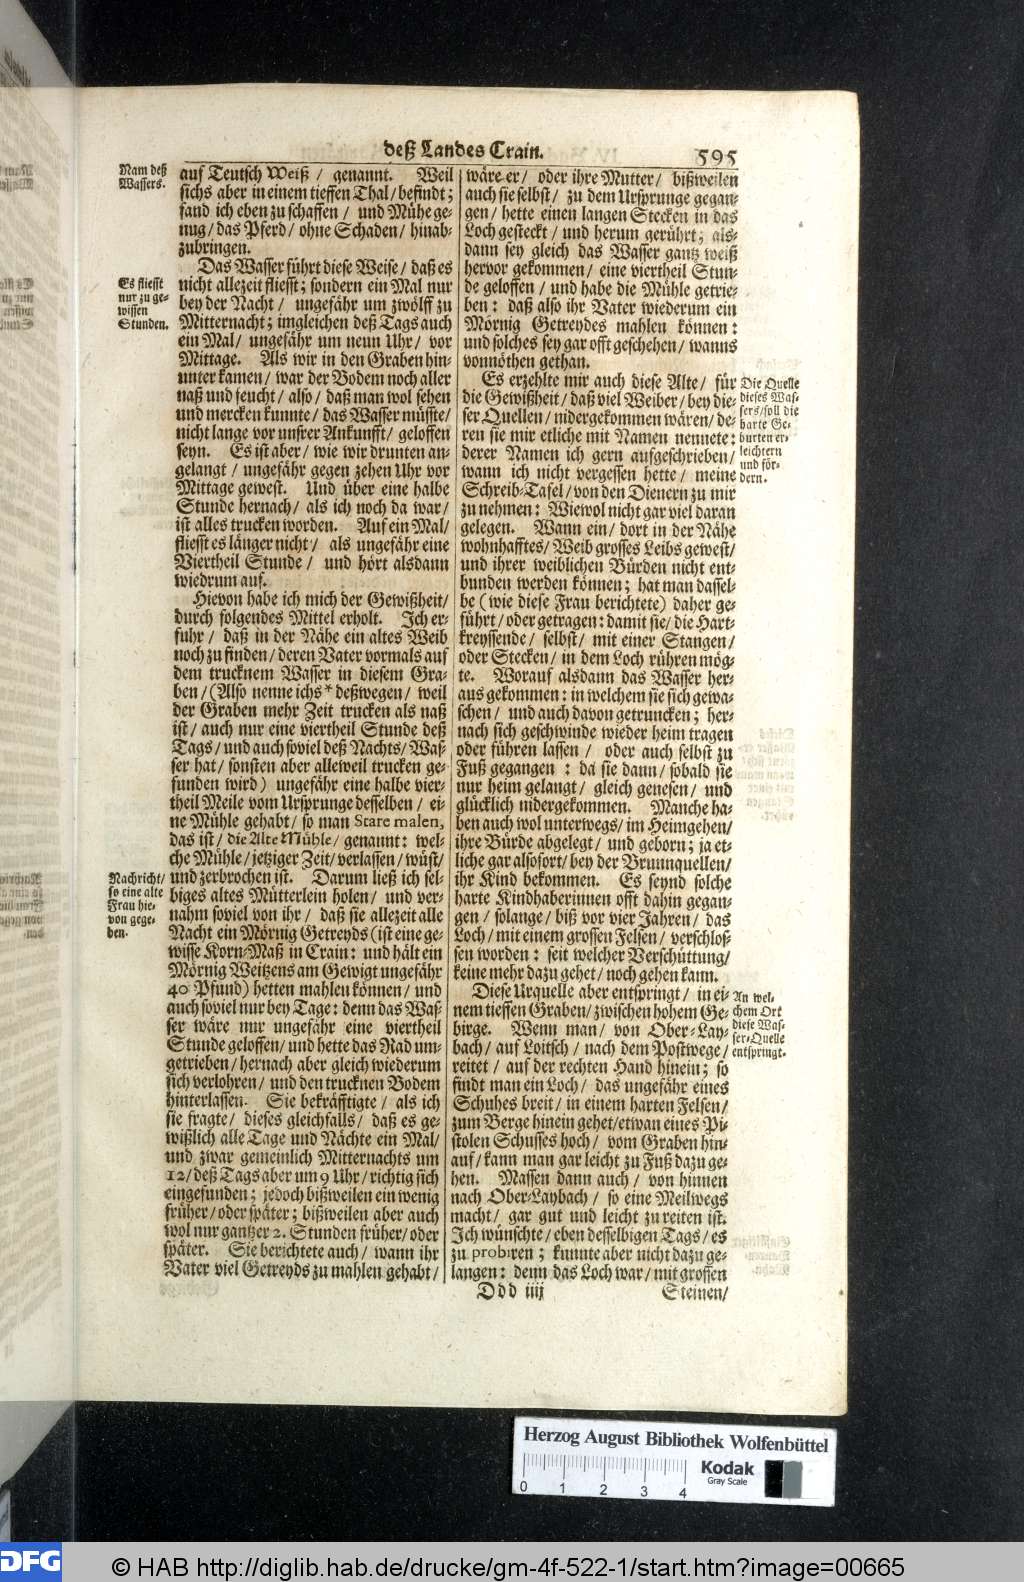 deß Landes Crain. 595
Nam deß
Wassers.
auf Teutsch Weiß / genannt. Weil
sichs aber in einem tieffen Thal / befindt;
fand ich eben zu schaffen / und Mühe ge-
nug / das Pferd / ohne Schaden / hinab-
zubringen.
Das Wasser führt diese Weise / daß es
Es fliesst
nur zu ge-
wissen
Stunden.
nicht allezeit fliesst; sondern ein Mal nur
bey der Nacht / ungefähr um zwölff zu
Mitternacht; imgleichen deß Tags auch
ein Mal / ungefähr um neun Uhr / vor
Mittage. Als wir in den Graben hin-
unter kamen / war der Bodem noch aller
naß und feucht / also / daß man wol sehen
und mercken kunnte / das Wasser müsste /
nicht lange vor unsrer Ankunfft / geloffen
seyn. Es ist aber / wie wir drunten an-
gelangt / ungefähr gegen zehen Uhr vor
Mittage gewest. Und über eine halbe
Stunde hernach / als ich noch da war /
ist alles trucken worden. Auf ein Mal /
fliesst es länger nicht / als ungefähr eine
Viertheil Stunde / und hört alsdann
wiedrum auf.
Hievon habe ich mich der Gewißheit /
durch folgendes Mittel erholt. Ich er-
fuhr / daß in der Nähe ein altes Weib
noch zu finden / deren Vater vormals auf
dem trucknem Wasser in diesem Gra-
ben / (Also nenne ichs * deßwegen / weil
der Graben mehr Zeit trucken als naß
ist / auch nur eine viertheil Stunde deß
Tags / und auch soviel deß Nachts / Was-
ser hat / sonsten aber alleweil trucken ge-
funden wird) ungefähr eine halbe vier-
theil Meile vom Ursprunge desselben / ei-
ne Mühle gehabt / so man Stare malen,
das ist / die Alte Mühle / genannt: wel-
che Mühle / jetziger Zeit / verlassen / wüst /
Nachricht /
so eine alte
Frau hie-
von gege-
ben.
und zerbrochen ist. Darum ließ ich sel-
biges altes Mütterlein holen / und ver-
nahm soviel von ihr / daß sie allezeit alle
Nacht ein Mörnig Getreyds (ist eine ge-
wisse Korn-Maß in Crain: und hält ein
Mörnig Weitzens am Gewigt ungefähr
40 Pfund) hetten mahlen können / und
auch soviel nur bey Tage: denn das Was-
ser wäre nur ungefähr eine viertheil
Stunde geloffen / und hette das Rad um-
getrieben / hernach aber gleich wiederum
sich verlohren / und den trucknen Bodem
hinterlassen. Sie bekräfftigte / als ich
sie fragte / dieses gleichfalls / daß es ge-
wißlich alle Tage und Nächte ein Mal /
und zwar gemeinlich Mitternachts um
12 / deß Tags aber um 9 Uhr / richtig sich
eingefunden; jedoch bißweilen ein wenig
früher / oder später; bißweilen aber auch
wol nur gantzer 2. Stunden früher / oder
später. Sie berichtete auch / wann ihr
Vater viel Getreyds zu mahlen gehabt /
wäre er / oder ihre Mutter / bißweilen
auch sie selbst / zu dem Ursprunge gegan-
gen / hette einen langen Stecken in das
Loch gesteckt / und herum gerührt; als-
dann sey gleich das Wasser gantz weiß
hervor gekommen / eine viertheil Stun-
de geloffen / und habe die Mühle getrie-
ben: daß also ihr Vater wiederum ein
Mörnig Getreydes mahlen können:
und solches sey gar offt geschehen / wanns
vonnöthen gethan.
Es erzehlte mir auch diese Alte / für
Die Quelle
dieses Was-
sers / soll die
harte Ge-
burten er-
leichtern
und för-
dern.
die Gewißheit / daß viel Weiber / bey die-
ser Quellen / nidergekommen wären / de-
ren sie mir etliche mit Namen nennete:
derer Namen ich gern aufgeschrieben /
wann ich nicht vergessen hette / meine
Schreib-Tafel / von den Dienern zu mir
zu nehmen: Wiewol nicht gar viel daran
gelegen. Wann ein / dort in der Nähe
wohnhafftes / Weib grosses Leibs gewest /
und ihrer weiblichen Bürden nicht ent-
bunden werden können; hat man dassel-
be (wie diese Frau berichtete) daher ge-
führt / oder getragen: damit sie / die Hart-
kreyssende / selbst / mit einer Stangen /
oder Stecken / in dem Loch rühren mög-
te. Worauf alsdann das Wasser her-
aus gekommen: in welchem sie sich gewa-
schen / und auch davon getruncken; her-
nach sich geschwinde wieder heim tragen
oder führen lassen / oder auch selbst zu
Fuß gegangen: da sie dann / sobald sie
nur heim gelangt / gleich genesen / und
glücklich nidergekommen. Manche ha-
ben auch wol unterwegs / im Heimgehen /
ihre Bürde abgelegt / und geborn; ja et-
liche gar alsofort / bey der Brunnquellen /
ihr Kind bekommen. Es seynd solche
harte Kindhaberinnen offt dahin gegan-
gen / solange / biß vor vier Jahren / das
Loch / mit einem grossen Felsen / verschlos-
sen worden: seit welcher Verschüttung /
keine mehr dazu gehet / noch gehen kann.
Diese Urquelle aber entspringt / in ei-
An wel-
chem Ort
diese Was-
ser-Quelle
entspringt.
nem tieffen Graben / zwischen hohem Ge-
birge. Wenn man / von Ober-Lay-
bach / auf Loitsch / nach dem Postwege /
reitet / auf der rechten Hand hinein; so
findt man ein Loch / das ungefähr eines
Schuhes breit / in einem harten Felsen /
zum Berge hinein gehet / etwan eines Pi-
stolen Schusses hoch / vom Graben hin-
auf / kann man gar leicht zu Fuß dazu ge-
hen. Massen dann auch / von hinnen
nach Ober-Laybach / so eine Meilwegs
macht / gar gut und leicht zu reiten ist.
Ich wünschte / eben desselbigen Tags / es
zu probiren; kunnte aber nicht dazu ge-
langen: denn das Loch war / mit grossen
Ddd iiij Steinen /
Herzog August Bibliothek Wolfenbüttel
0 1 2 3 4
Kodak
Gray Scale
DFG
© HAB http://diglib.hab.de/drucke/gm-4f-522-1/start.htm?image=00665